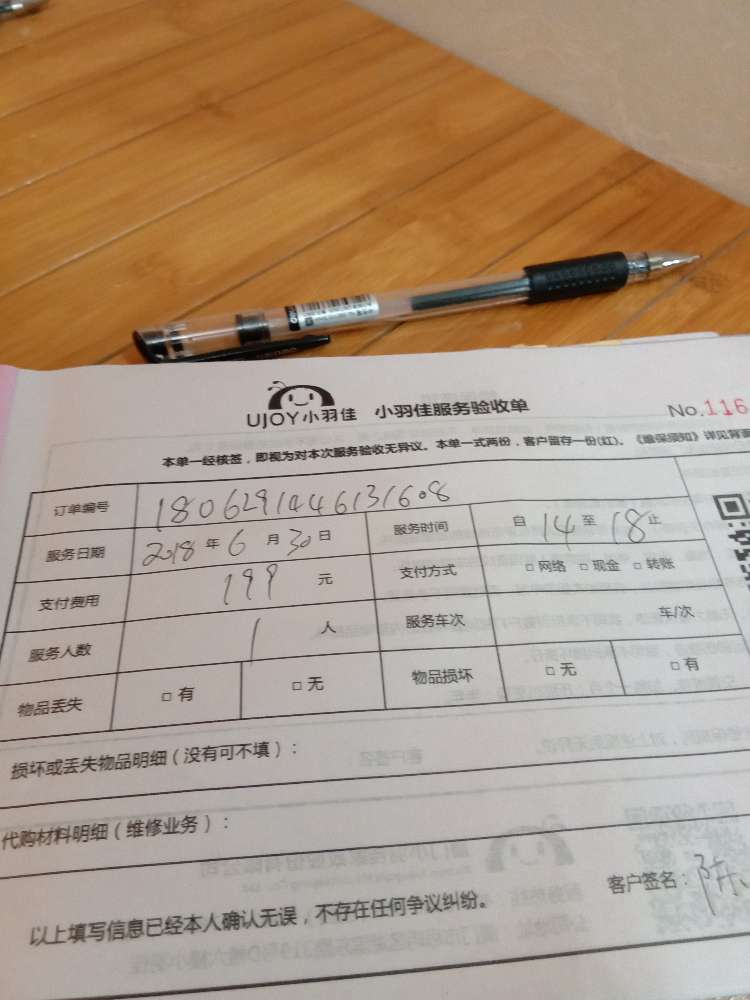 UJOY小羽佳 小羽佳服务验收单
No.116
本单一经核签，即视为对本次服务验收无异议。本单一式两份，客户留存一份(红)。《维保须知》详见背面
订单编号 1806291446131608
服务日期 2018 年 6 月 30 日 服务时间 自 14 至 18 止
支付费用 199 元 支付方式 □ 网络 □ 现金 □ 转账
服务人数 1 人 服务车次 车/次
物品丢失 □ 有 □ 无 物品损坏 □ 无 □ 有
损坏或丢失物品明细（没有可不填）：
代购材料明细（维修业务）：
客户签名：陈
以上填写信息已经本人确认无误，不存在任何争议纠纷。